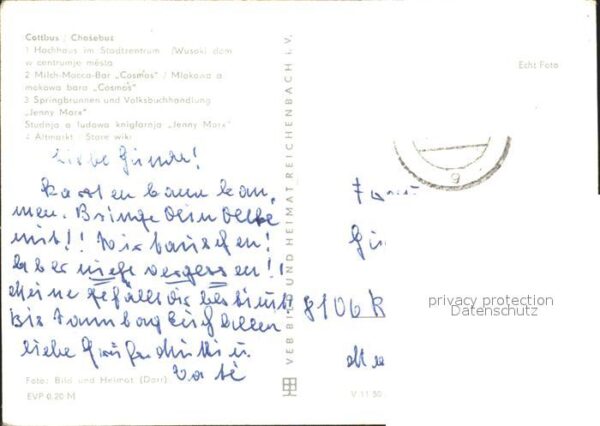 Cottbus / Chośebuz
1 Hochhaus im Stadtzentrum /Wusoki dom
w centrumje města
2 Milch-Mocca-Bar „Cosmos" / Mlokowa a
mokowa bara „Cosmos"
3 Springbrunnen und Volksbuchhandlung
„Jenny Marx"
Studnja a ludowa knigłarnja „Jenny Marx"
4 Altmarkt / Stare wiki
Liebe
kann
men. Bringe Dein
mit!! Wir tauschen!
Aber nicht vergessen!!
Meine gefällt Dir bestimmt
Bis Euch allen
liebe Grüße u.
Foto: Bild und Heimat (Dorr)
EVP 0.20 M
VEB BILD UND HEIMAT REICHENBACH i. V.
Echt Foto
9
8106 R
V 11 50
privacy protection
Datenschutz